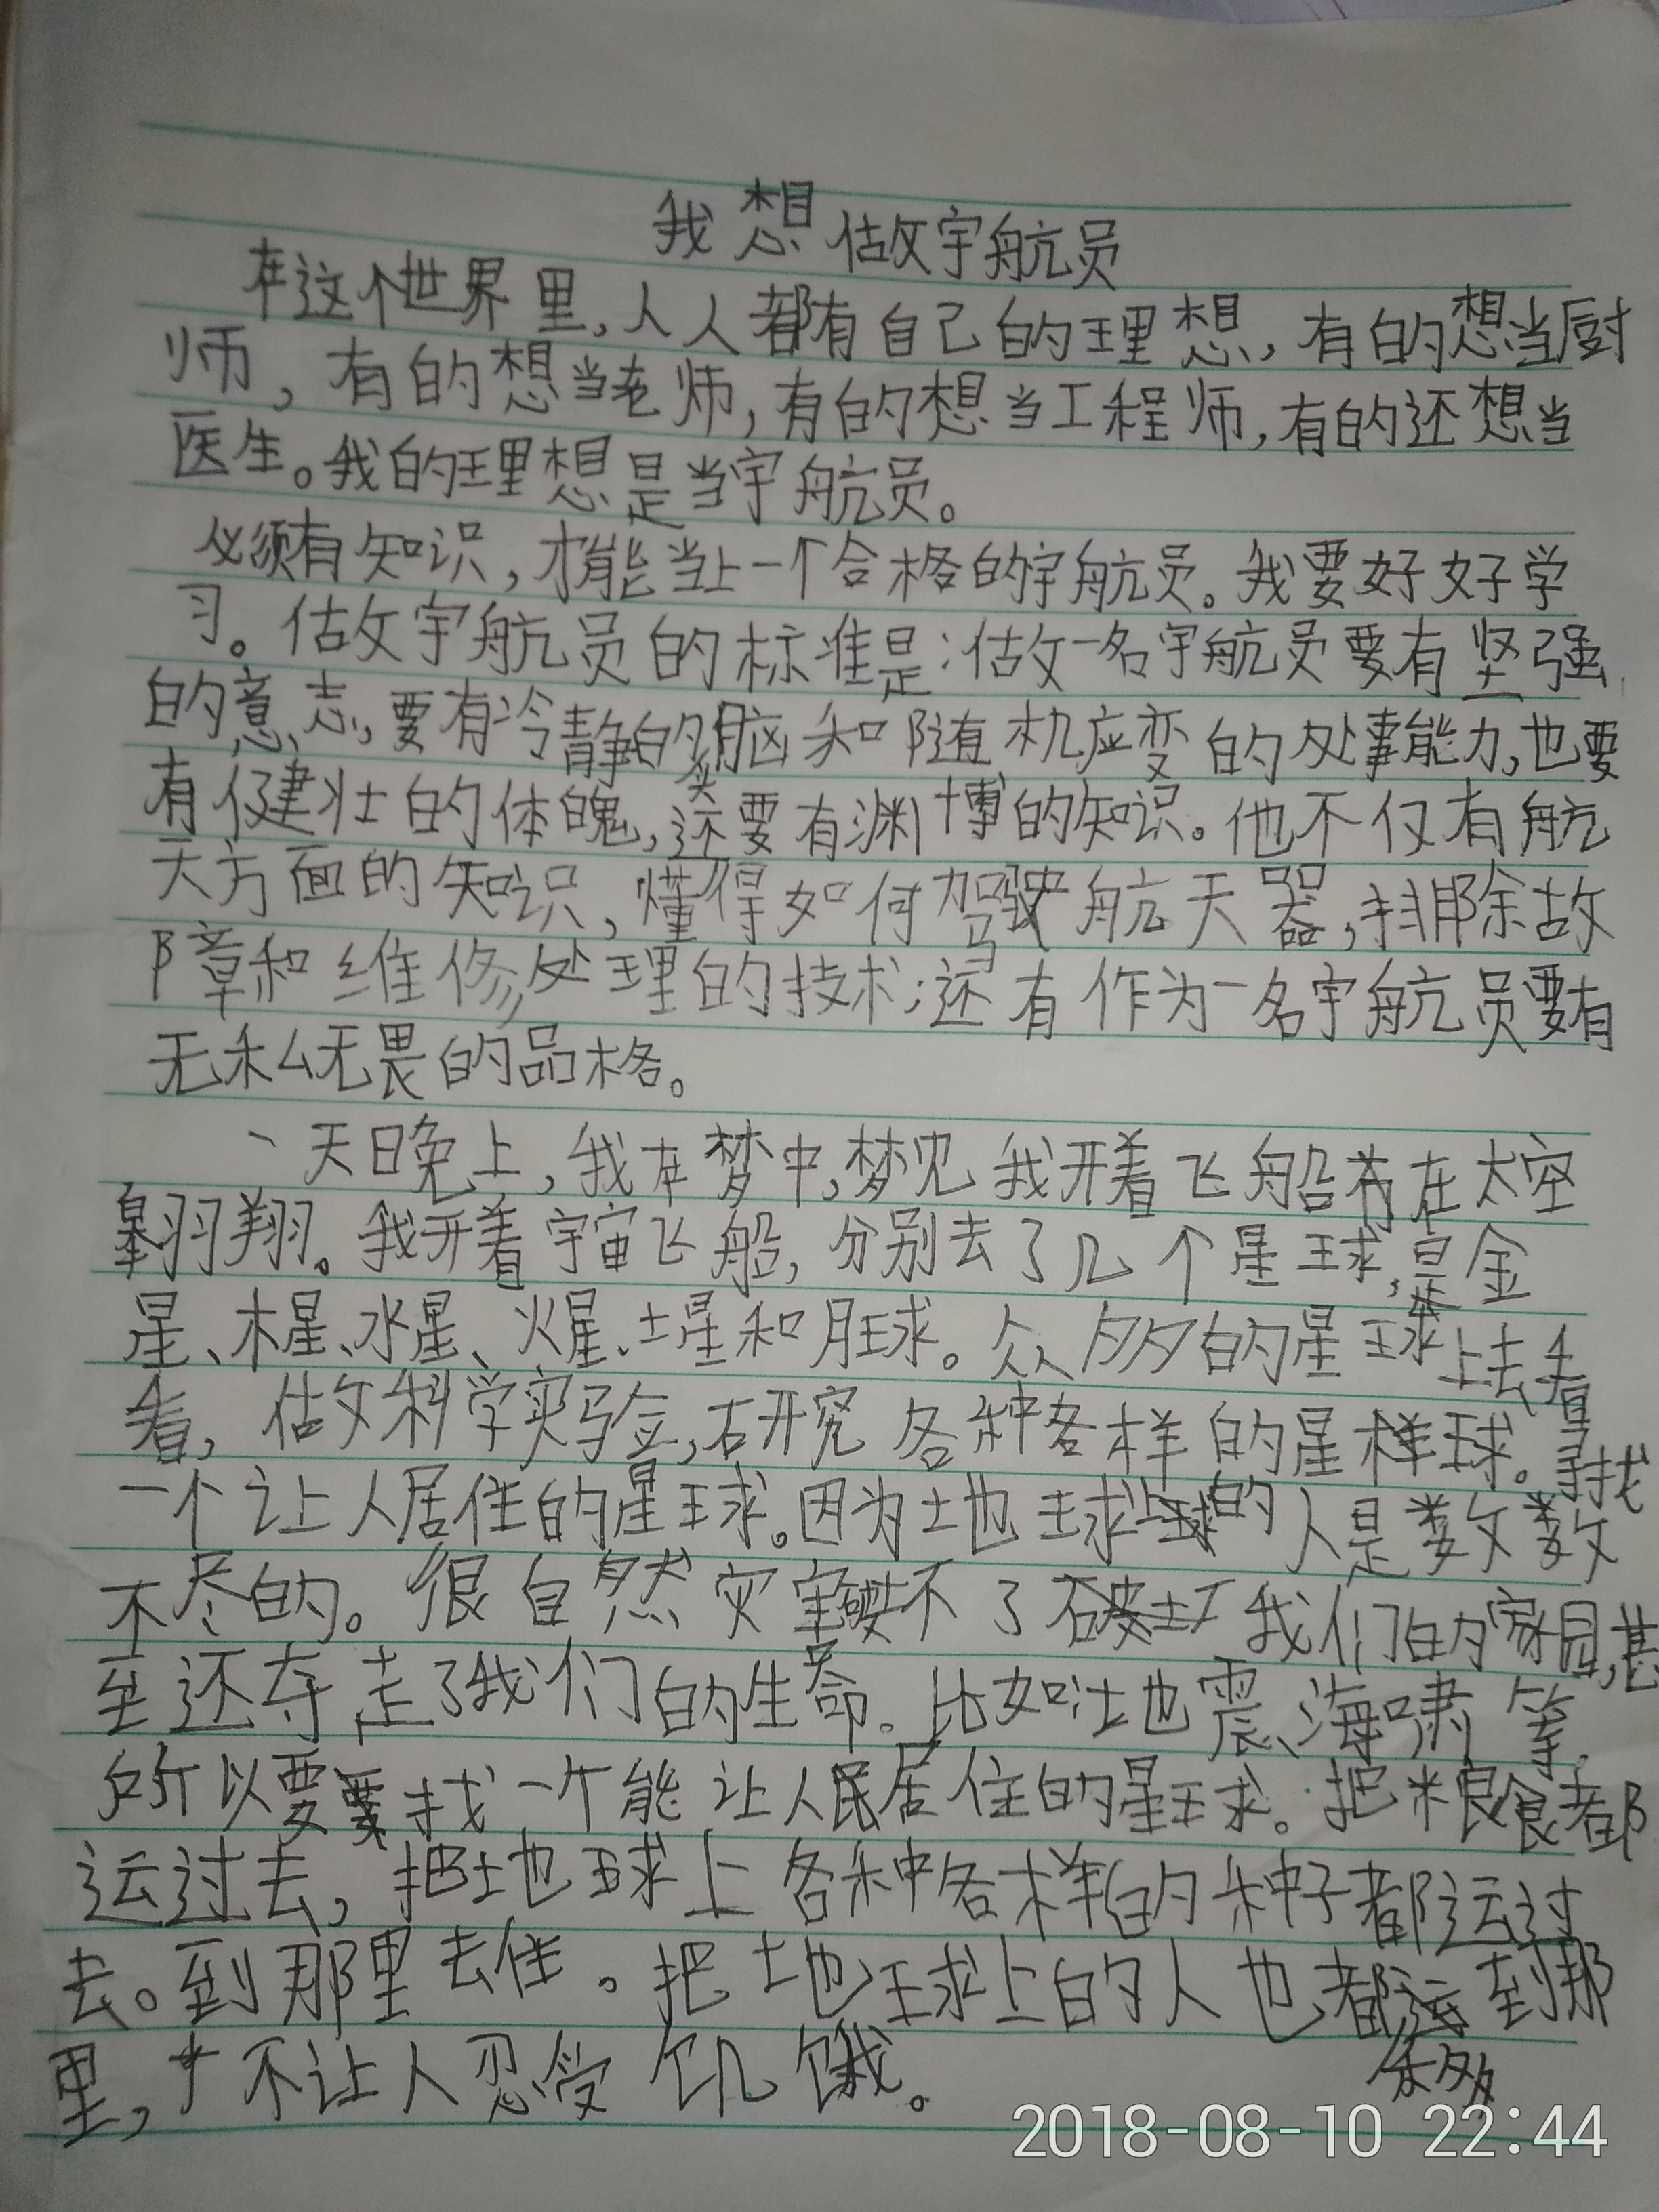 我想做宇航员
在这个世界里,人人都有自己的理想,有的想当厨
师,有的想当老师,有的想当工程师,有的还想当
医生。我的理想是当宇航员。
必须有知识,才能当上一个合格的宇航员。我要好好学
习。做宇航员的标准是:做一名宇航员要有坚强
的意志,要有冷静的头脑和随机应变的处事能力,也要
有健壮的体魄,还要有渊博的知识。他不仅有航
天方面的知识,懂得如何驾驶航天器,排除故
障和维修处理的技术;还有作为一名宇航员要有
无私无畏的品格。
一天日晚上,我在梦中,梦见我开着飞船在太空
翱翔。我开着宇宙飞船,分别去了几个星球,是金
星、木星、水星、火星、土星和月球。众多的星球上去看
看,做科学实验,研究各种各样的星球。寻找
一个让人居住的星球。因为地球的人是数数
不尽的。很自然灾害不了破坏我们的家园,甚
至还夺走了我们的生命。比如:地震、海啸等。
所以要找一个能让人民居住的星球。把粮食都
运过去,把地球上各种各样的种子都运过
去。到那里去住。把地球上的人也都移到那
里,不让人忍受饥饿。
2018-08-10 22:44